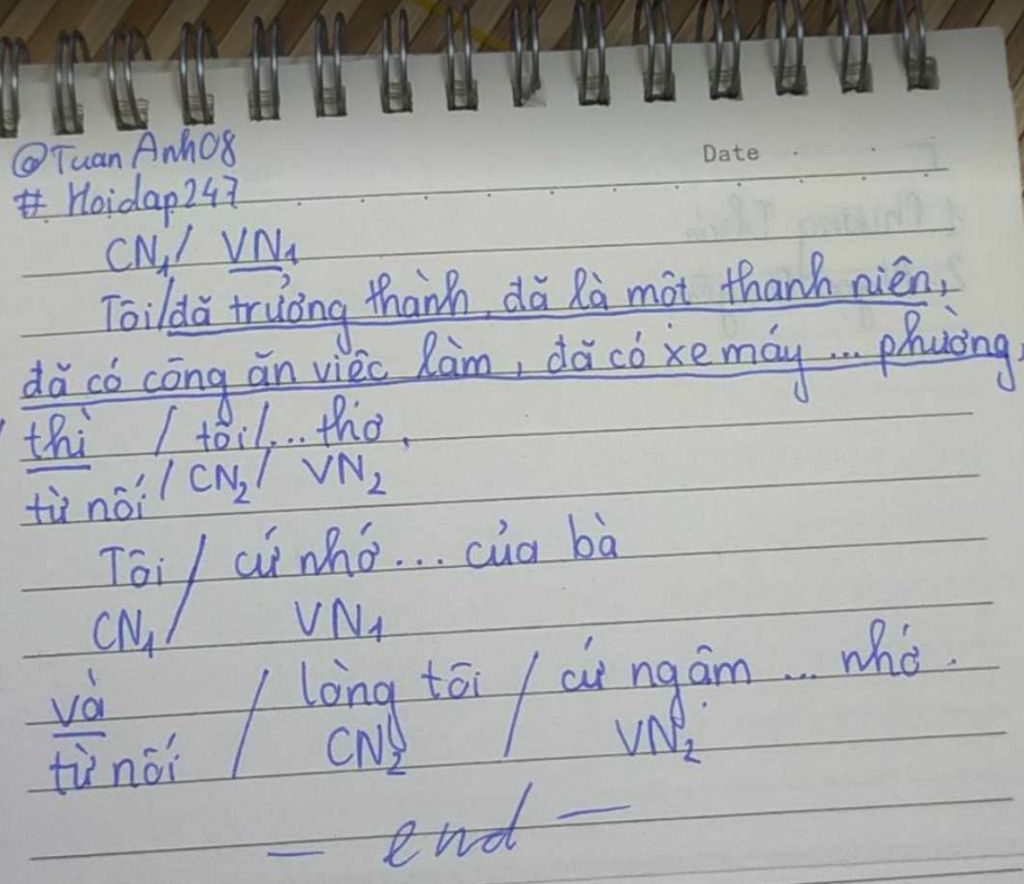 @TuanAnh08
Date
# Hoidap247
CN1/ VN1
Tôi/đã trưởng thành, đã là một thanh niên,
đã có công ăn việc làm, đã có xe máy ... phường,
thì / tôi/... thơ.
từ nối / CN2 / VN2
Tôi / cứ nhớ... của bà
CN1/ VN1
và / lòng tôi / cứ ngâm ... nhớ.
từ nối / CN2 / VN2
— end —